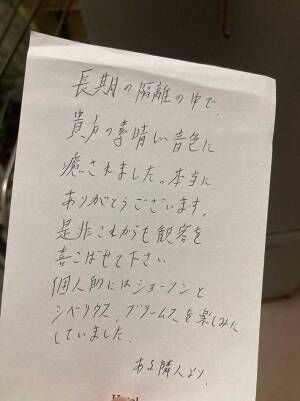 長期の隔離の中で、
貴方の素晴しい音色に
癒されました。本当に
ありがとうございます。
是非これからも観客を
喜こばせて下さい
個人的にはショーソンと
シベリウス、ブラームスを楽しみに
していました。
ある隣人より、